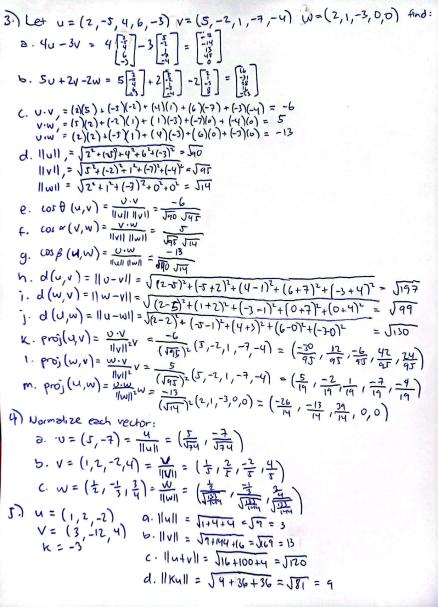 3.) Let u = (2, -5, 4, 6, -3) v = (5, -2, 1, -7, -4) w = (2, 1, -3, 0, 0) find:
a. 4u - 3v = 4 - 3 =
b. 5u + 2v - 2w = 5 + 2 - 2 =
c. u·v = (2)(5) + (-5)(-2) + (4)(1) + (6)(-7) + (-3)(-4) = -6
v·w = (5)(2) + (-2)(1) + (1)(-3) + (-7)(0) + (-4)(0) = 5
u·w = (2)(2) + (-5)(1) + (4)(-3) + (6)(0) + (-3)(0) = -13
d. ||u|| = √2²+(-5)²+4²+6²+(-3)² = √90
||v|| = √5²+(-2)²+1²+(-7)²+(-4)² = √95
||w|| = √2²+1²+(-3)²+0²+0² = √14
e. cosθ (u,v) = u·v / ||u|| ||v|| = -6 / √90 √95
f. cos α (v,w) = v·w / ||v|| ||w|| = 5 / √95 √14
g. cosβ (u,w) = u·w / ||u|| ||w|| = -13 / √90 √14
h. d(u,v) = ||u-v|| = √(2-5)²+(-5+2)²+(4-1)²+(6+7)²+(-3+4)² = √197
i. d(w,v) = ||w-v|| = √(2-5)²+(1+2)²+(-3-1)²+(0+7)²+(0+4)² = √99
j. d(u,w) = ||u-w|| = √(2-2)²+(-5-1)²+(4+3)²+(6-0)²+(-3-0)² = √130
k. proj(u,v) = u·v / ||v||² v = -6 / (√95)² (5, -2, 1, -7, -4) = (-30/95, 12/95, -6/95, 42/95, 24/95)
l. proj(w,v) = w·v / ||v||² v = 5 / (√95)² (5, -2, 1, -7, -4) = (5/19, -2/19, 1/19, -7/19, -4/19)
m. proj(u,w) = u·w / ||w||² w = -13 / (√14)² (2, 1, -3, 0, 0) = (-26/14, -13/14, 39/14, 0, 0)
4.) Normalize each vector:
a. u = (5, -7) = u / ||u|| = (5/√74, -7/√74)
b. v = (1, 2, -2, 4) = v / ||v|| = (1/5, 2/5, -2/5, 4/5)
c. w = (1/2, -1/3, 3/4) = w / ||w|| =
5.) u = (1, 2, -2) a. ||u|| = √1+4+4 = √9 = 3
v = (3, -12, 4) b. ||v|| = √9+144+16 = √169 = 13
k = -3 c. ||u+v|| = √16+100+4 = √120
d. ||ku|| = √9+36+36 = √81 = 9